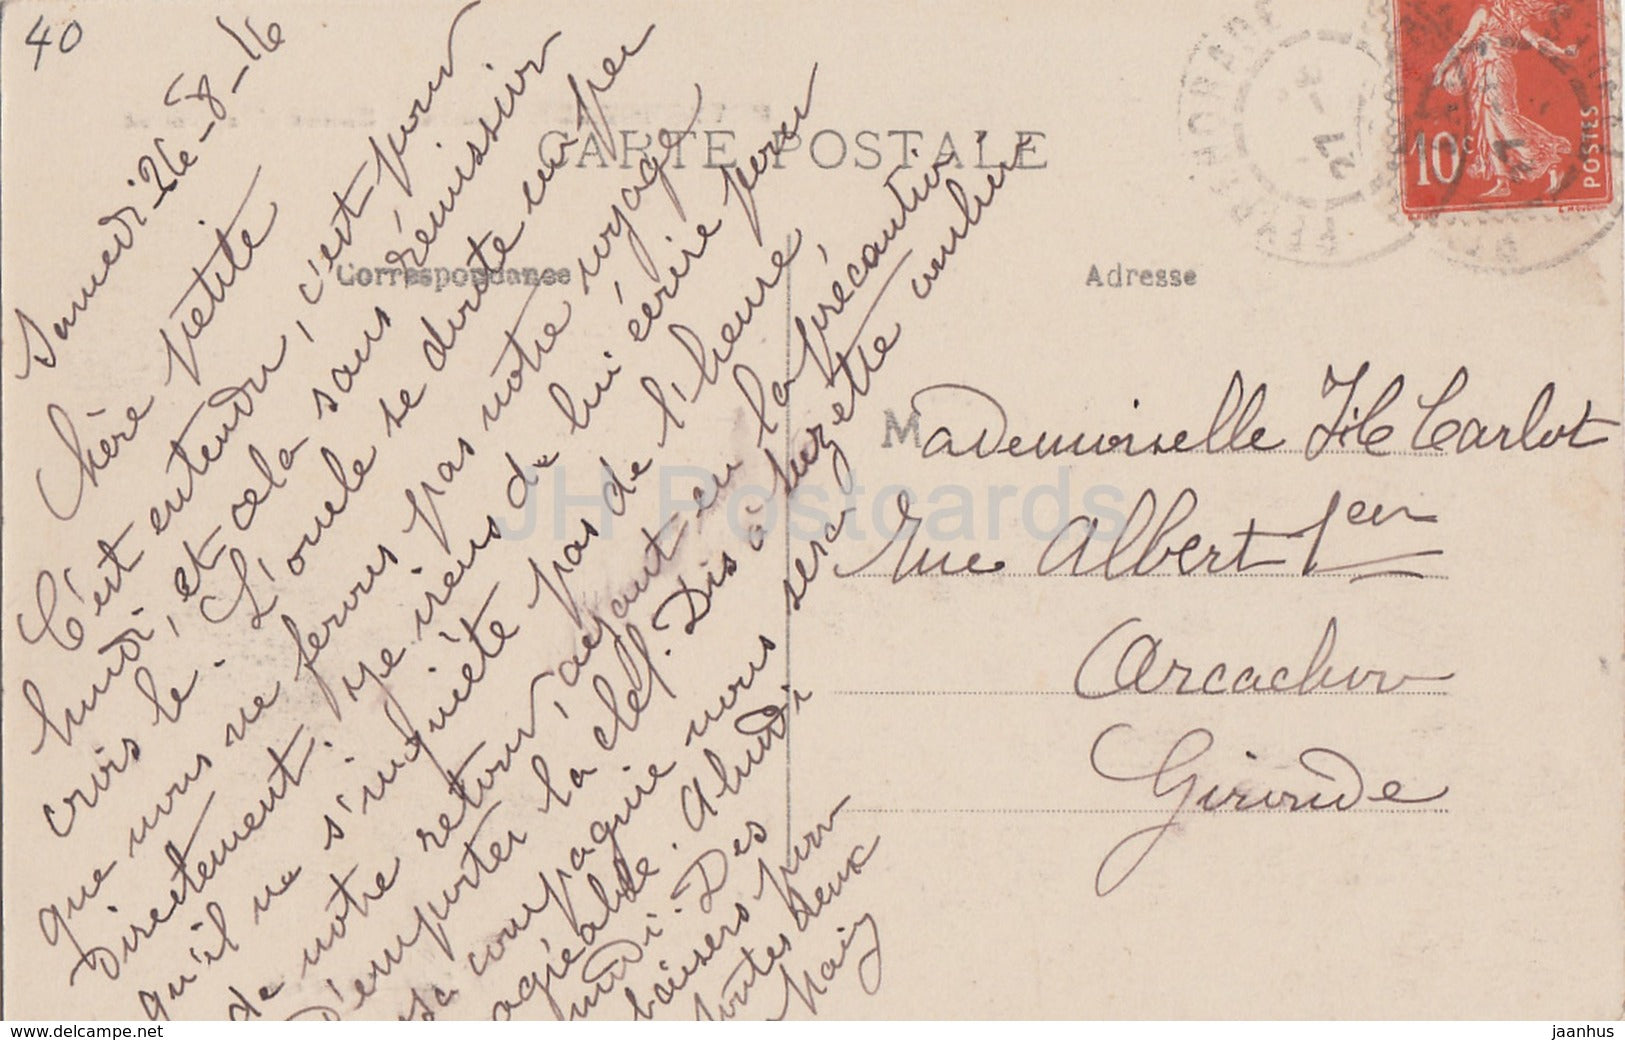 40
CARTE POSTALE
Correspondance
Adresse
10c
POSTES
Samedi-26-8-16
Chère petite
C'est entendu, c'est pour
lundi, et cela sans rémission
crois le. L'oncle se doute un peu
que nous ne ferons pas notre voyage
directement. Je viens de lui écrire pour
qu'il ne s'inquiète pas de l'heure
de notre retour, ayant eu la précaution
d'emporter la clef. Dis à Suzette combien
sa compagnie nous sera
agréable. A lundi
midi. Des
baisers pour
toutes deux
Mademoiselle Carlot
Rue Albert 1er
Arcachon
Gironde
JH Postcards
www.delcampe.net
jaanhus